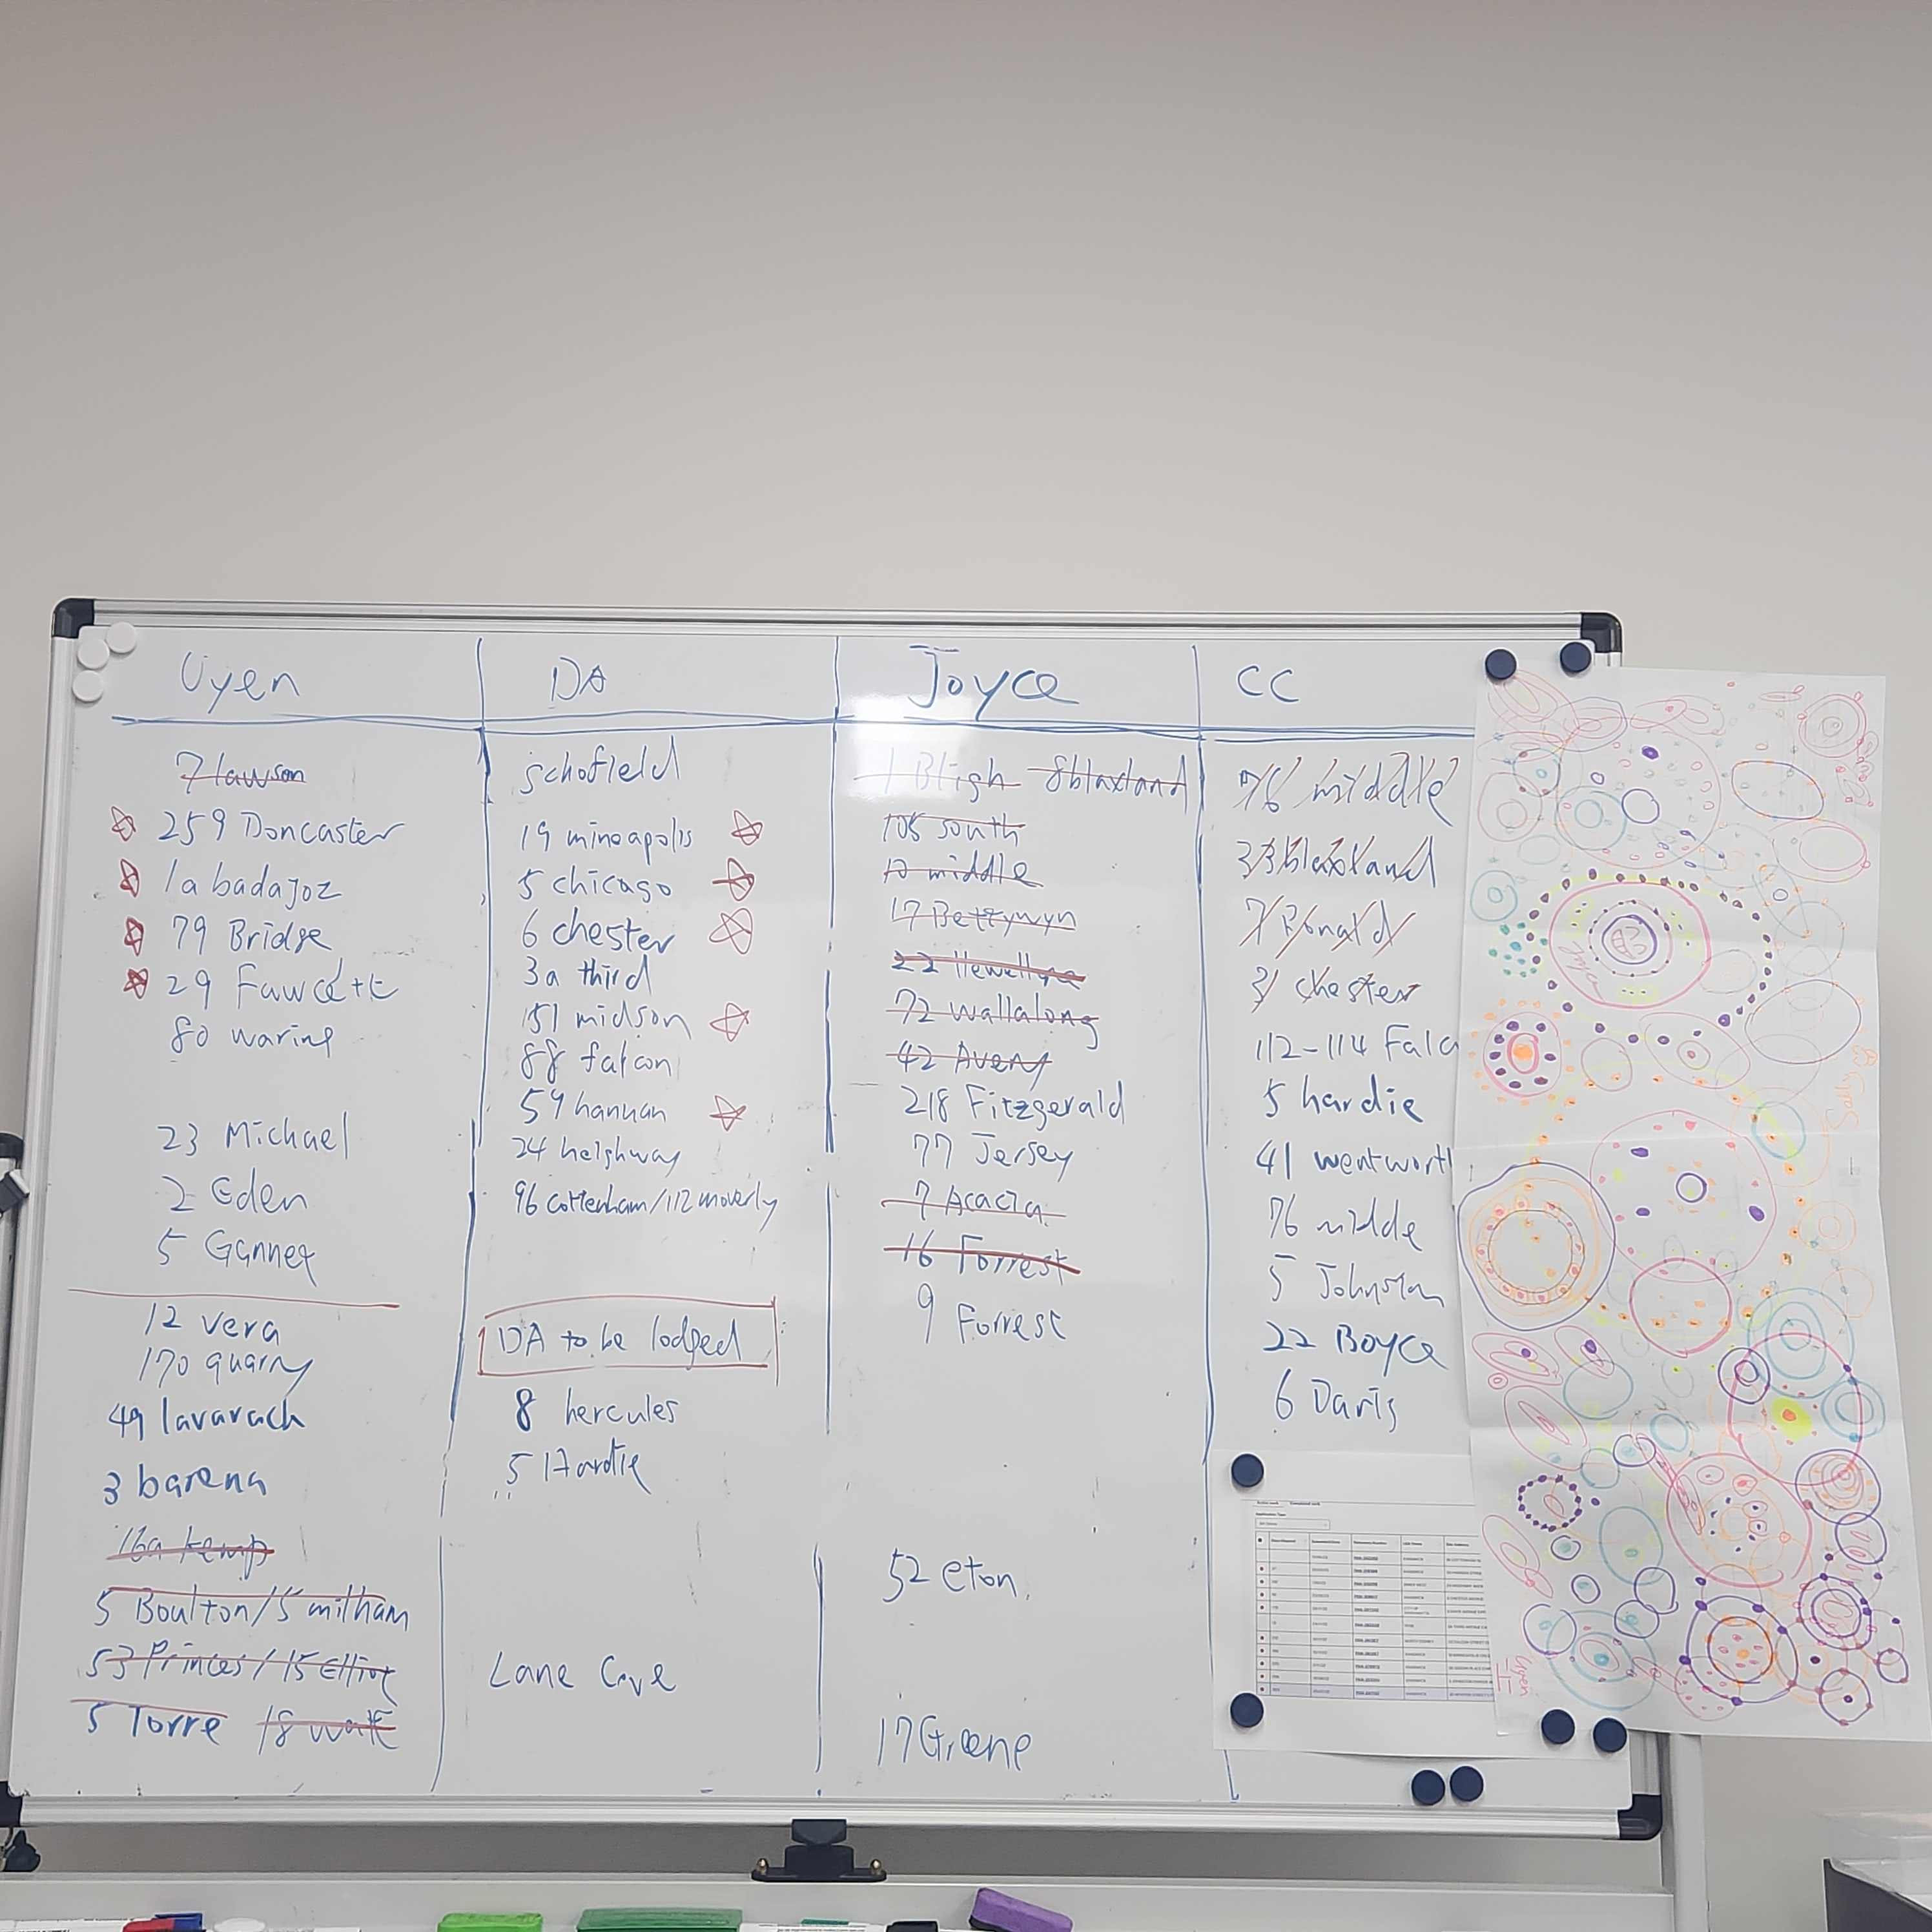 Uyen
7 lawson
259 Doncaster
1a badajoz
79 Bridge
29 Fawcett
80 waring
23 Michael
2 Eden
5 Gannet
12 vera
170 quarry
49 lavarach
3 barena
16a kemp
5 Boulton/5 milham
53 Princes/15 Elliot
5 Torre 18 wait
DA
schofield
19 mineapolis
5 chicago
6 chester
3a third
151 midson
88 falcon
59 hannan
24 heighway
96 cottenham/112 moverly
DA to be lodged
8 hercules
5 Hardie
Lane Cove
Joyce
1 Bligh 8 blaxland
105 south
10 middle
17 Bettywyn
22 llewellyn
72 wallalong
42 Avery
218 Fitzgerald
77 Jersey
7 Acacia
16 Forrest
9 Forrest
52 eton
17 Greene
CC
76 middle
33 blaxland
7 Ronald
31 chester
112-114 Falc
5 hardie
41 wentwort
76 midde
5 Johnston
22 Boyce
6 Daris
Sally
Uyen